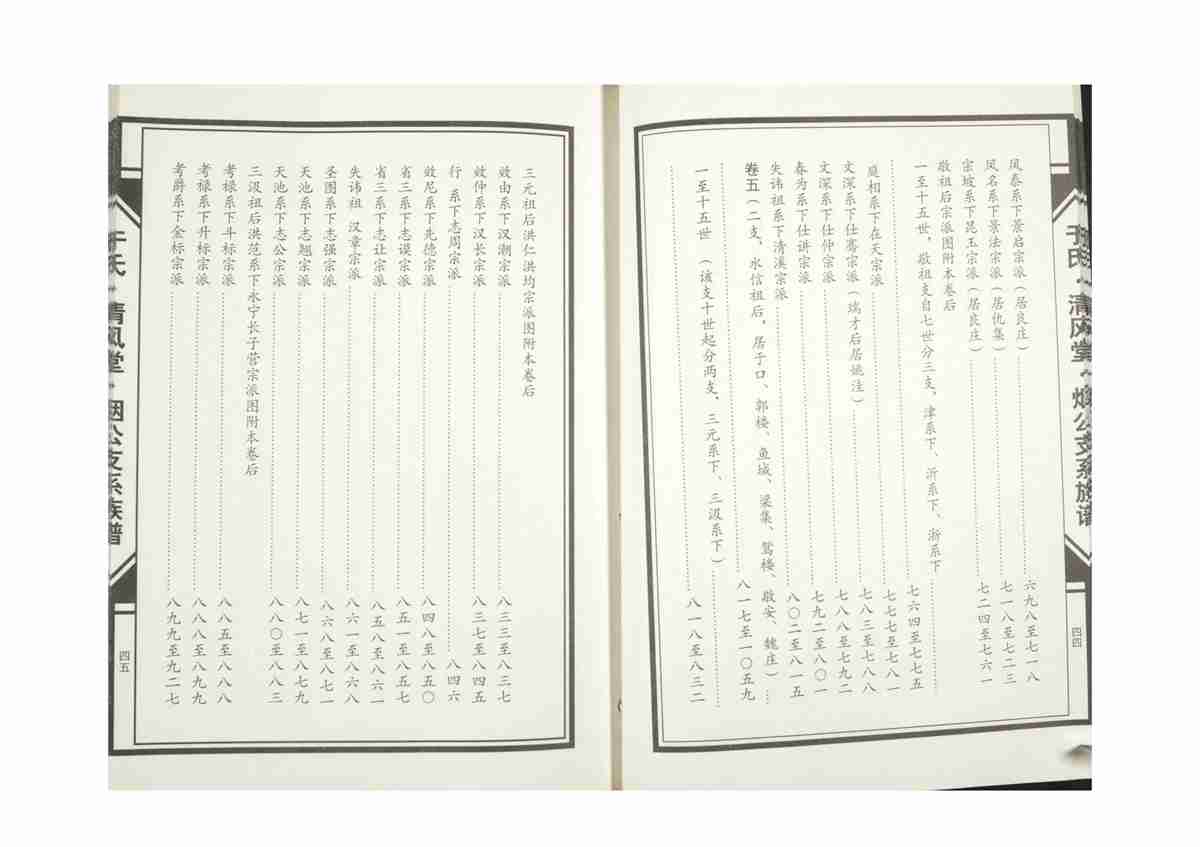 于氏 清风堂 烟公支系族谱
四四
凤泰系下景启宗派(居良庄)……六九八至七一八
凤名系下景法宗派(居仇集)……七一八至七二三
宗坡系下昆玉宗派(居良庄)……七二四至七六一
敬祖后宗派图附本卷后
一至十五世,敬祖支自七世分三支,津系下、沂系下、浙系下
……七六四至七七五
庭相系下在天宗派……七七七至七八一
文深系下仕骞宗派(瑞才后居姚洼)……七八三至七八八
文深系下仕仲宗派……七八八至七九二
春为系下仕讲宗派……七九二至八〇一
失讳祖系下清溪宗派……八〇二至八一五
卷五(二支,永信祖后,居于口、郭楼、鱼城、梁集、鸳楼、敬安、魏庄)……
……八一七至一〇五九
一至十五世 (该支十世起分两支,三元系下、三汲系下)……
……八一八至八三二
三元祖后洪仁洪均宗派图附本卷后
效由系下汉潮宗派……八三三至八三七
效仲系下汉长宗派……八三七至八四五
行 系下志周宗派……八四六
效尼系下先德宗派……八四八至八五〇
省三系下志谟宗派……八五一至八五七
省三系下志让宗派……八五八至八六一
失讳祖 汉章宗派……八六一至八六八
圣图系下志强宗派……八六八至八七一
天池系下志翘宗派……八七一至八七九
天池系下志公宗派……八八〇至八八三
三汲祖后洪范系下永宁长子营宗派图附本卷后
考禄系下斗标宗派……八八五至八八八
考禄系下升标宗派……八八八至八九九
考爵系下金标宗派……八九九至九二七
于氏 清风堂 烟公支系族谱
四五